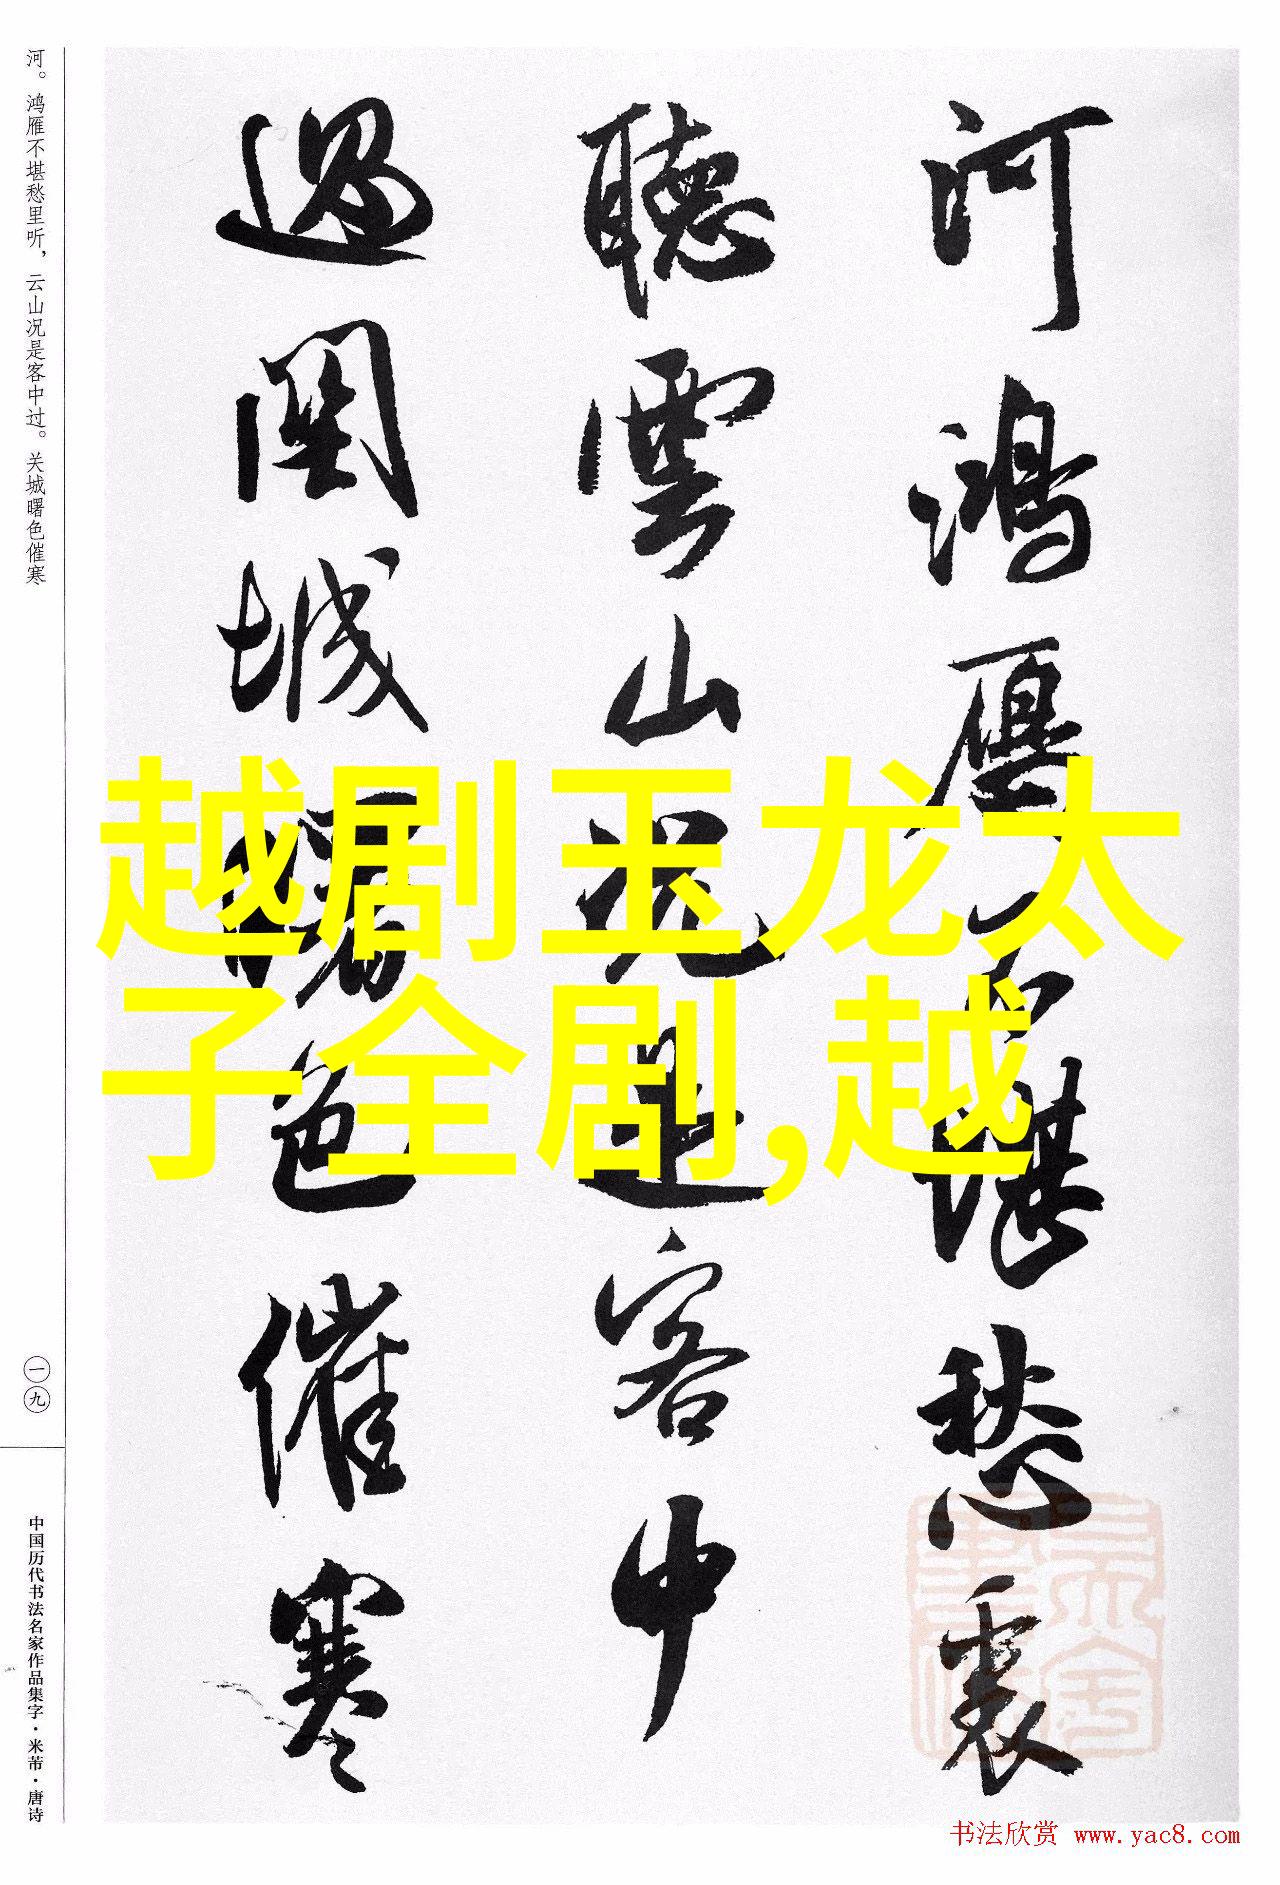 河鸿雁不堪愁裏
聽雲山况是客中
過関城曙色催寒
越剧玉龙太
子全剧,越
河。鸿雁不堪愁里听，云山况是客中过。关城曙色催寒
一九
中国历代书法名家作品集字·米芾·唐诗
书法欣赏 www.yac8.com